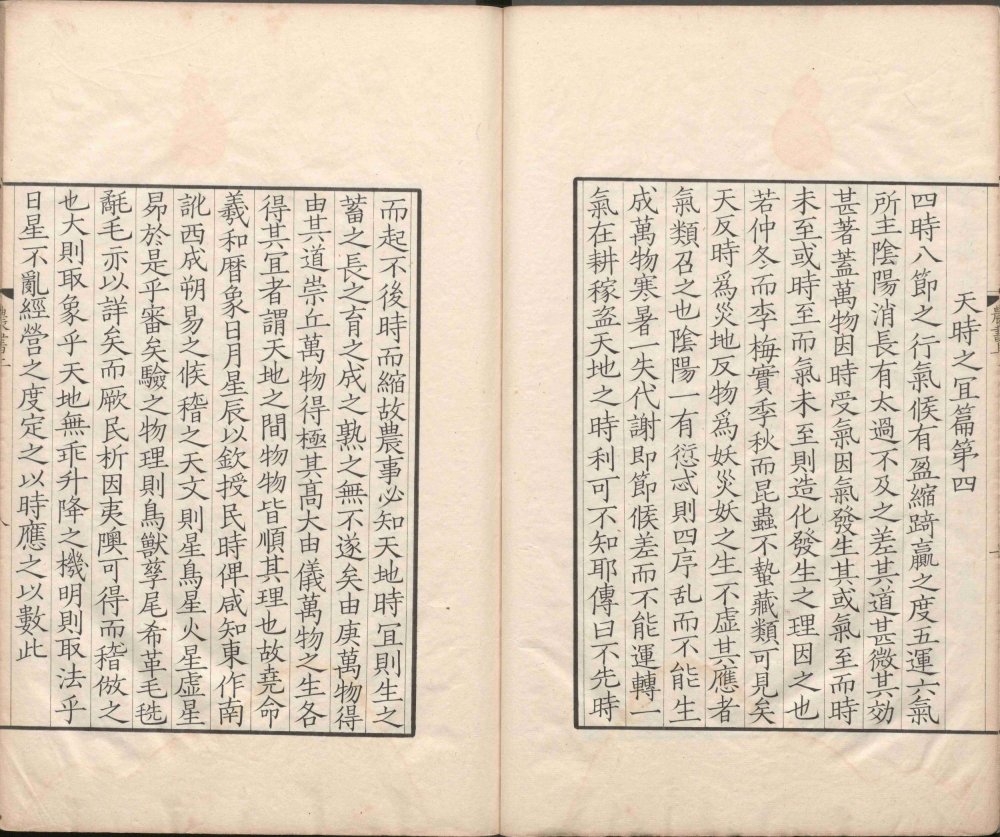 天時之冝篇第四
四時八節之行氣候有盈縮踦贏之度五運六氣
所主陰陽消長有太過不及之差其道甚微其効
甚著蓋萬物因時受氣因氣發生其或氣至而時
未至或時至而氣未至則造化發生之理因之也
若仲冬而李梅實季秋而昆蟲不蟄藏類可見矣
天反時爲災地反物爲妖災妖之生不虛其應者
氣類召之也陰陽一有愆忒則四序乱而不能生
成萬物寒暑一失代謝即節候差而不能運轉一
氣在耕稼盗天地之時利可不知耶傳曰不先時
而起不後時而縮故農事必知天地時冝則生之
蓄之長之育之成之熟之無不遂矣由庚萬物得
由其道崇丘萬物得極其髙大由儀萬物之生各
得其冝者謂天地之間物物皆順其理也故堯命
羲和暦象日月星辰以欽授民時俾咸知東作南
訛西成朔易之候稽之天文則星鳥星火星虛星
昴於是乎審矣驗之物理則鳥獸孳尾希革毛毨
氄毛亦以詳矣而厥民析因夷隩可得而稽倣之
也大則取象乎天地無乖升降之機明則取法乎
日星不亂經營之度定之以時應之以數此
農書